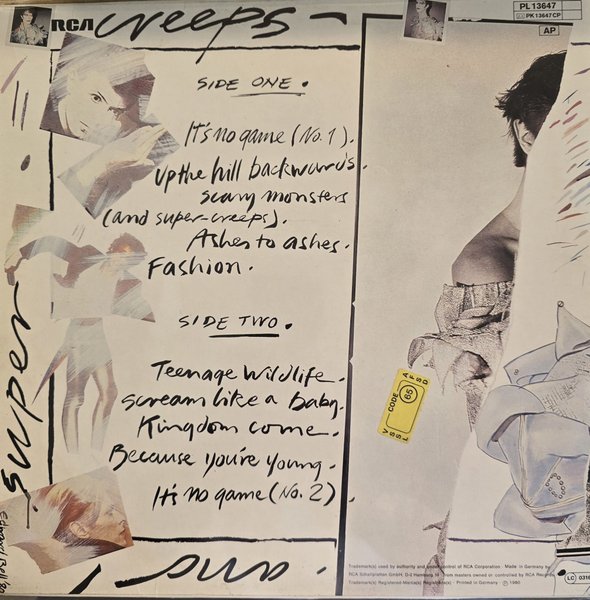 RCA
creeps
PL 13647
PK 13647 CP
AP
SIDE ONE.
It's no game (No. 1).
Up the hill backwards.
scary monsters
(and super-creeps).
Ashes to ashes.
Fashion.
SIDE TWO.
Teenage Wildlife.
scream like a baby.
Kingdom come.
Because you're young.
It's no game (No. 2)
super
and
CODE
65
AFSD
VSSL
Edward Bell 80
Trademark(s) used by authority and under control of RCA Corporation · Made in Germany
RCA Schallplatten GmbH, D-2 Hamburg
from masters owned or controlled by RCA Records
Trademark(s) Registered · Marca(s) Registrada(s) · Printed in Germany · ℗ 1980
LC 0316